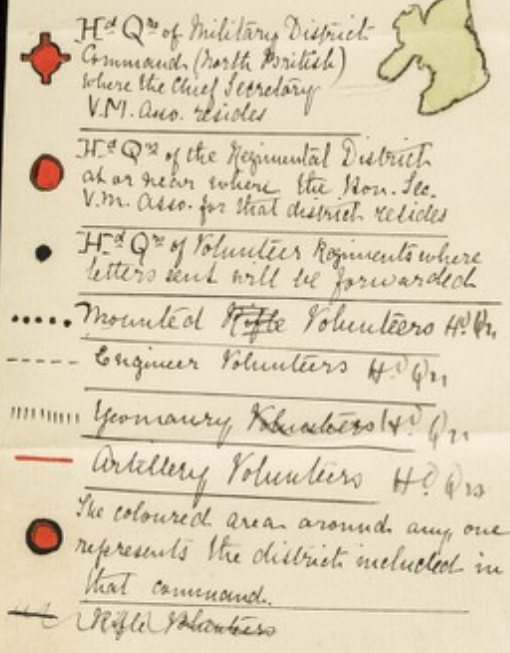 Hd Qrs of Military District
Command (North British)
where the Chief Secretary
V.M. Asso. resides
Hd Qrs of the Regimental District
at or near where the Hon. Sec.
V.M. Asso. for that district resides
Hd Qrs of Volunteer Regiments where
letters sent will be forwarded
Mounted Rifle Volunteers Hd Qrs
Engineer Volunteers Hd Qrs
Yeomanry Volunteers Hd Qrs
Artillery Volunteers Hd Qrs
The coloured area around any one
represents the district included in
that command.
Rifle Volunteers